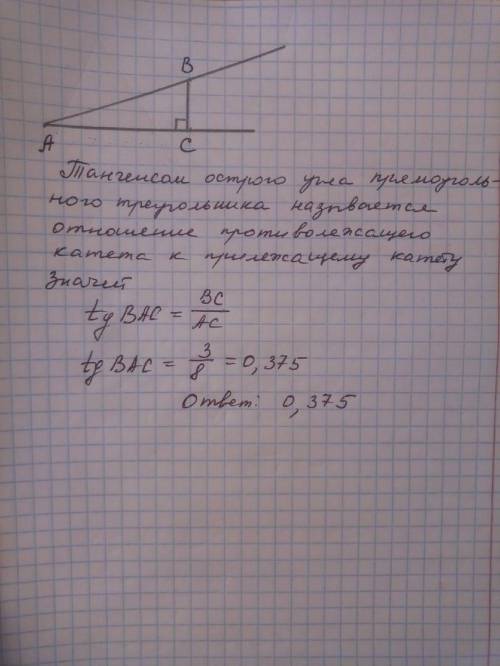 B
A
C
Тангенсом острого угла прямоуголь-
ного треугольника называется
отношение противолежащего
катета к прилежащему катету
Значит
tg BAC = BC/AC
tg BAC = 3/8 = 0,375
Ответ: 0,375